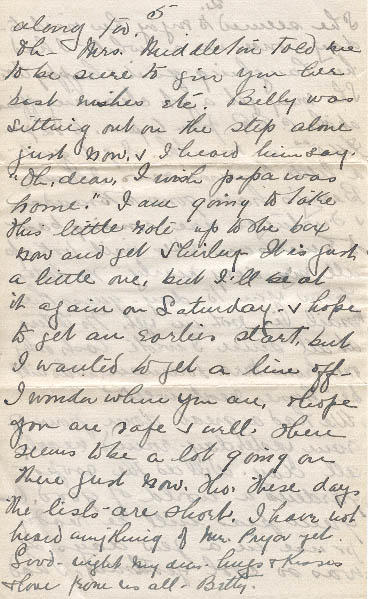 5
along too.
Oh Mrs. Middleton told me
to be sure to give you her
best wishes etc. Billy was
sitting out on the step alone
just now, & I heard him say,
"Oh, dear, I wish papa was
home." I am going to take
this little note up to the box
now and get Shirley. It is just
a little one, but I'll be at
it again on Saturday. & hope
to get an earlier start, but
I wanted to get a line off.
I wonder where you are, & hope
you are safe & well. There
seems to be a lot going on
there just now. Tho. these days
the lists are short. I have not
heard anything of Mr. Pryor yet.
Good-night my dear - hugs & kisses
& love from us all - Betty.